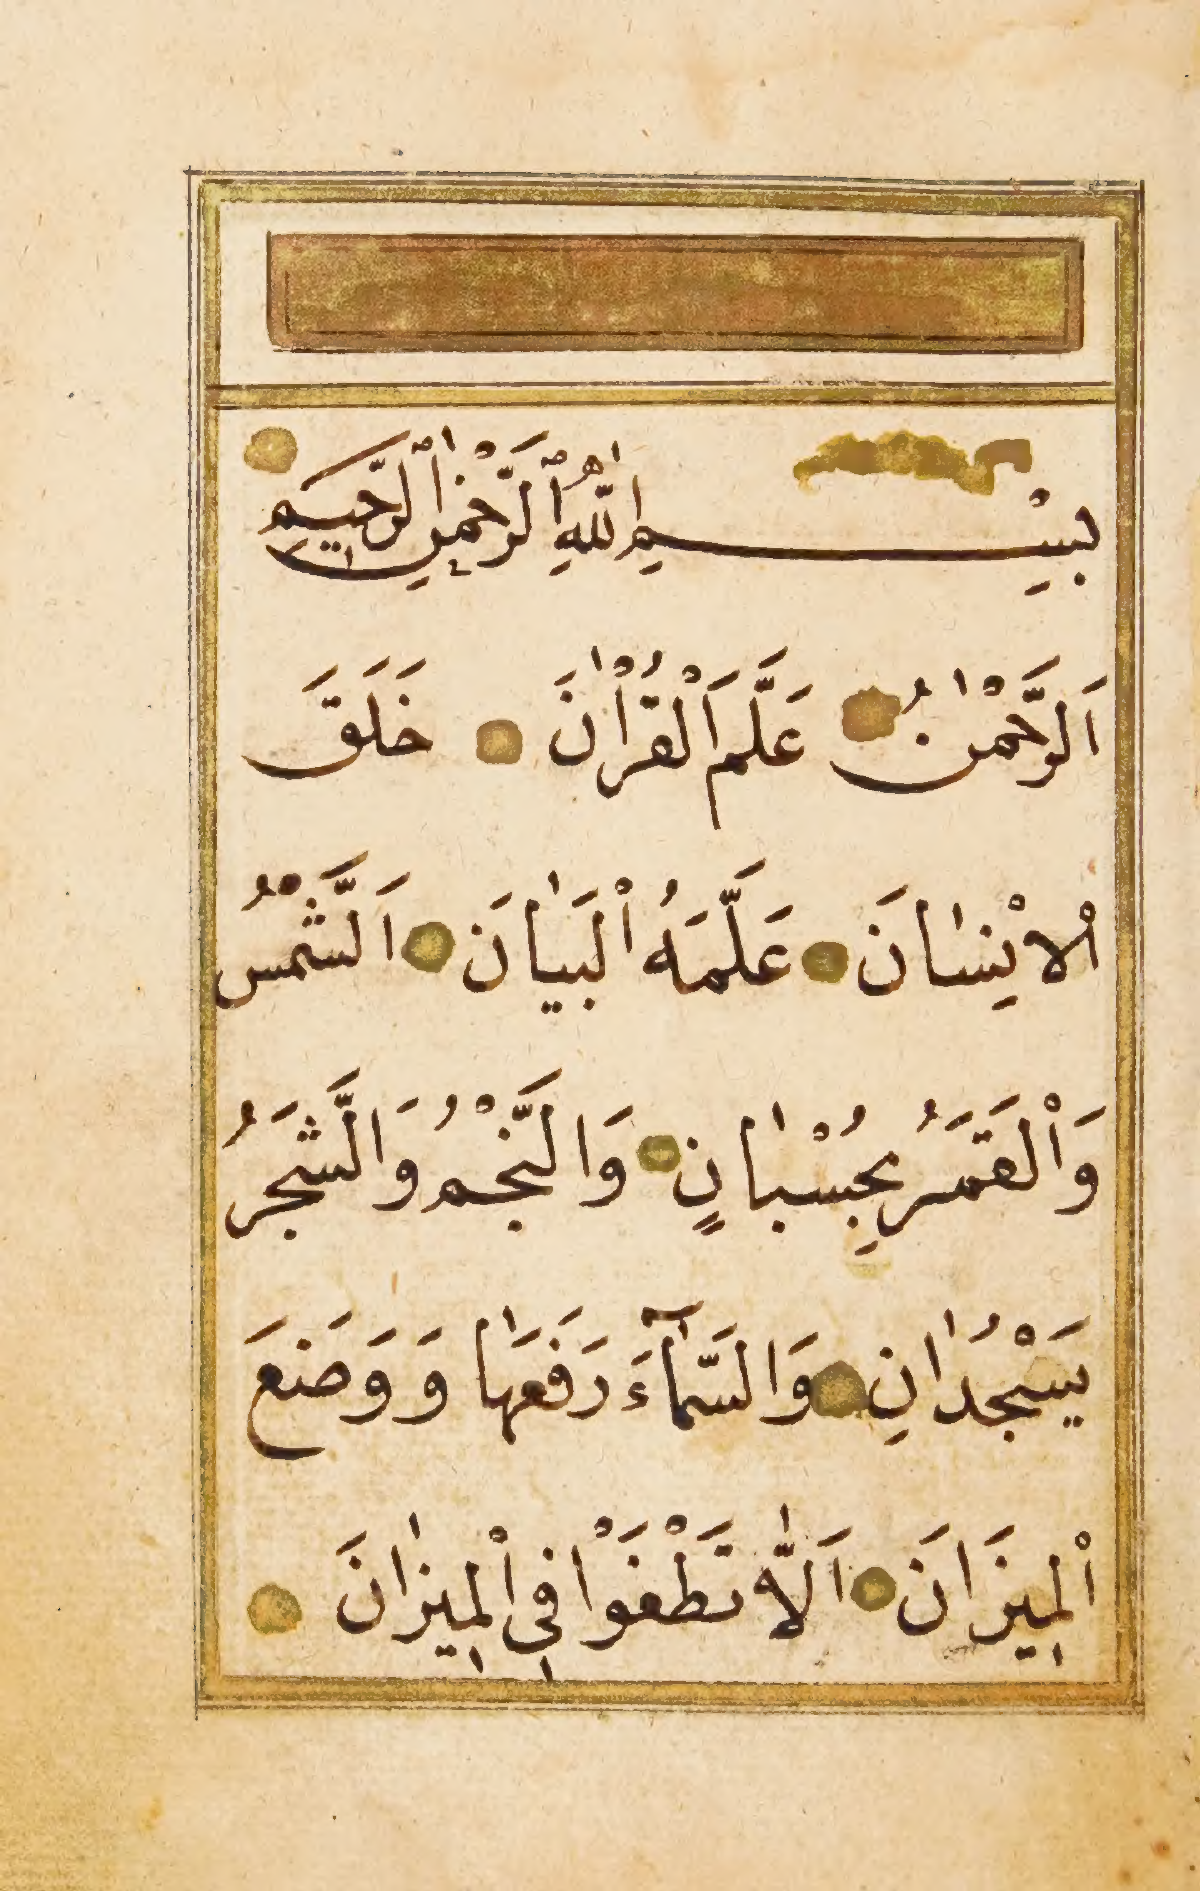 بِسْمِ اللّٰهِ الرَّحْمٰنِ الرَّحِيمِ
اَلرَّحْمٰنُ عَلَّمَ الْقُرْاٰنَ خَلَقَ
الْاِنْسٰانَ عَلَّمَهُ الْبَيٰانَ اَلشَّمْسُ
وَالْقَمَرُ بِحُسْبٰانٍ وَالنَّجْمُ وَالشَّجَرُ
يَسْجُدٰانِ وَالسَّمٰٓاءَ رَفَعَهٰا وَ وَضَعَ
الْمِيزٰانَ اَلّٰا تَطْغَوْا فِي الْمِيزٰانَ